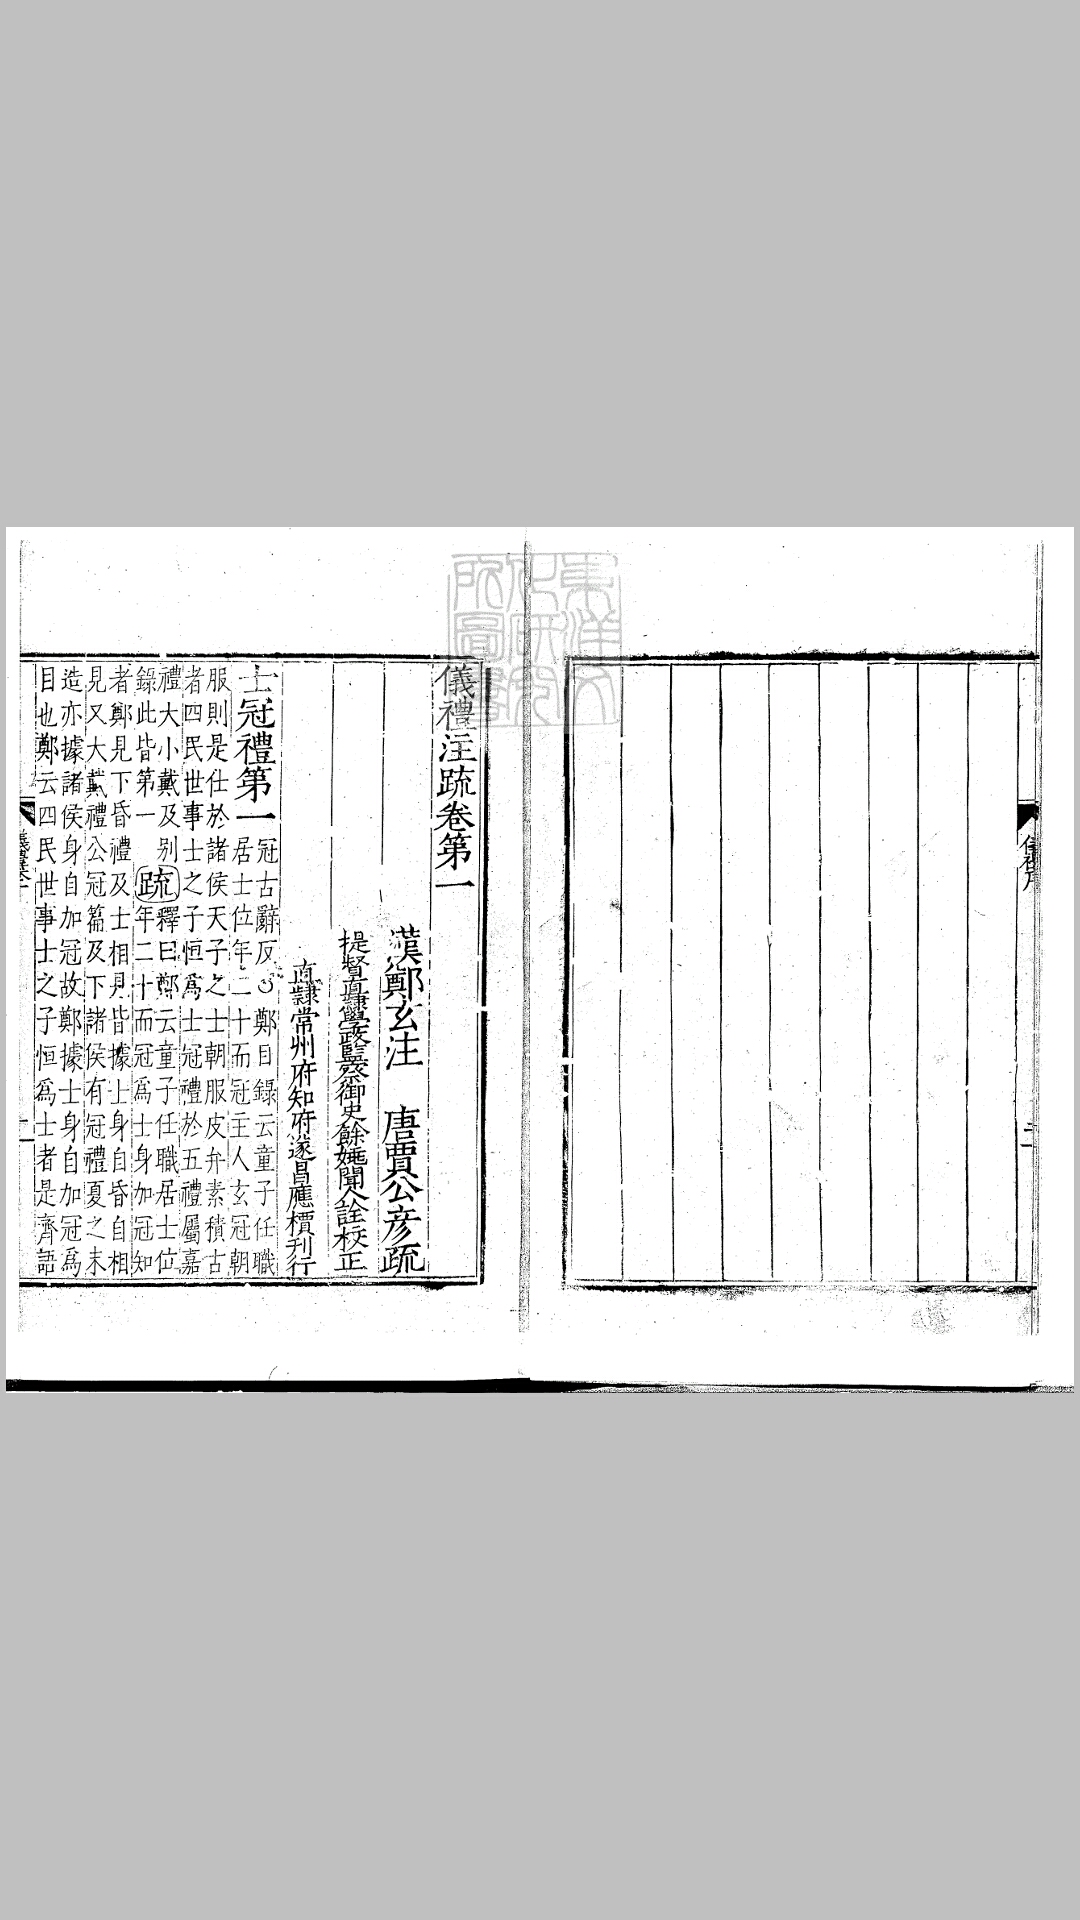 儀禮注疏卷第一
漢鄭玄注 唐賈公彦疏
提督直隸學政監察御史餘姚聞人詮校正
直隸常州府知府遂昌應檟刊行
士冠禮第一
冠古辭反○鄭目錄云童子任職
居士位年二十而冠主人玄冠朝
服則是仕於諸侯天子之士朝服皮弁素積古
者四民世事士之子恒爲士冠禮於五禮屬嘉
禮大小戴及别
錄此皆第一
疏
釋曰鄭云童子任職居士位
年二十而冠爲士身加冠知
者鄭見下昏禮及士相見皆據士身自昏自相
見又大戴禮公冠篇及下諸侯有冠禮夏之末
造亦據諸侯身自加冠故鄭據士身自加冠爲
目也鄭云四民世事士之子恒爲士者是齊語